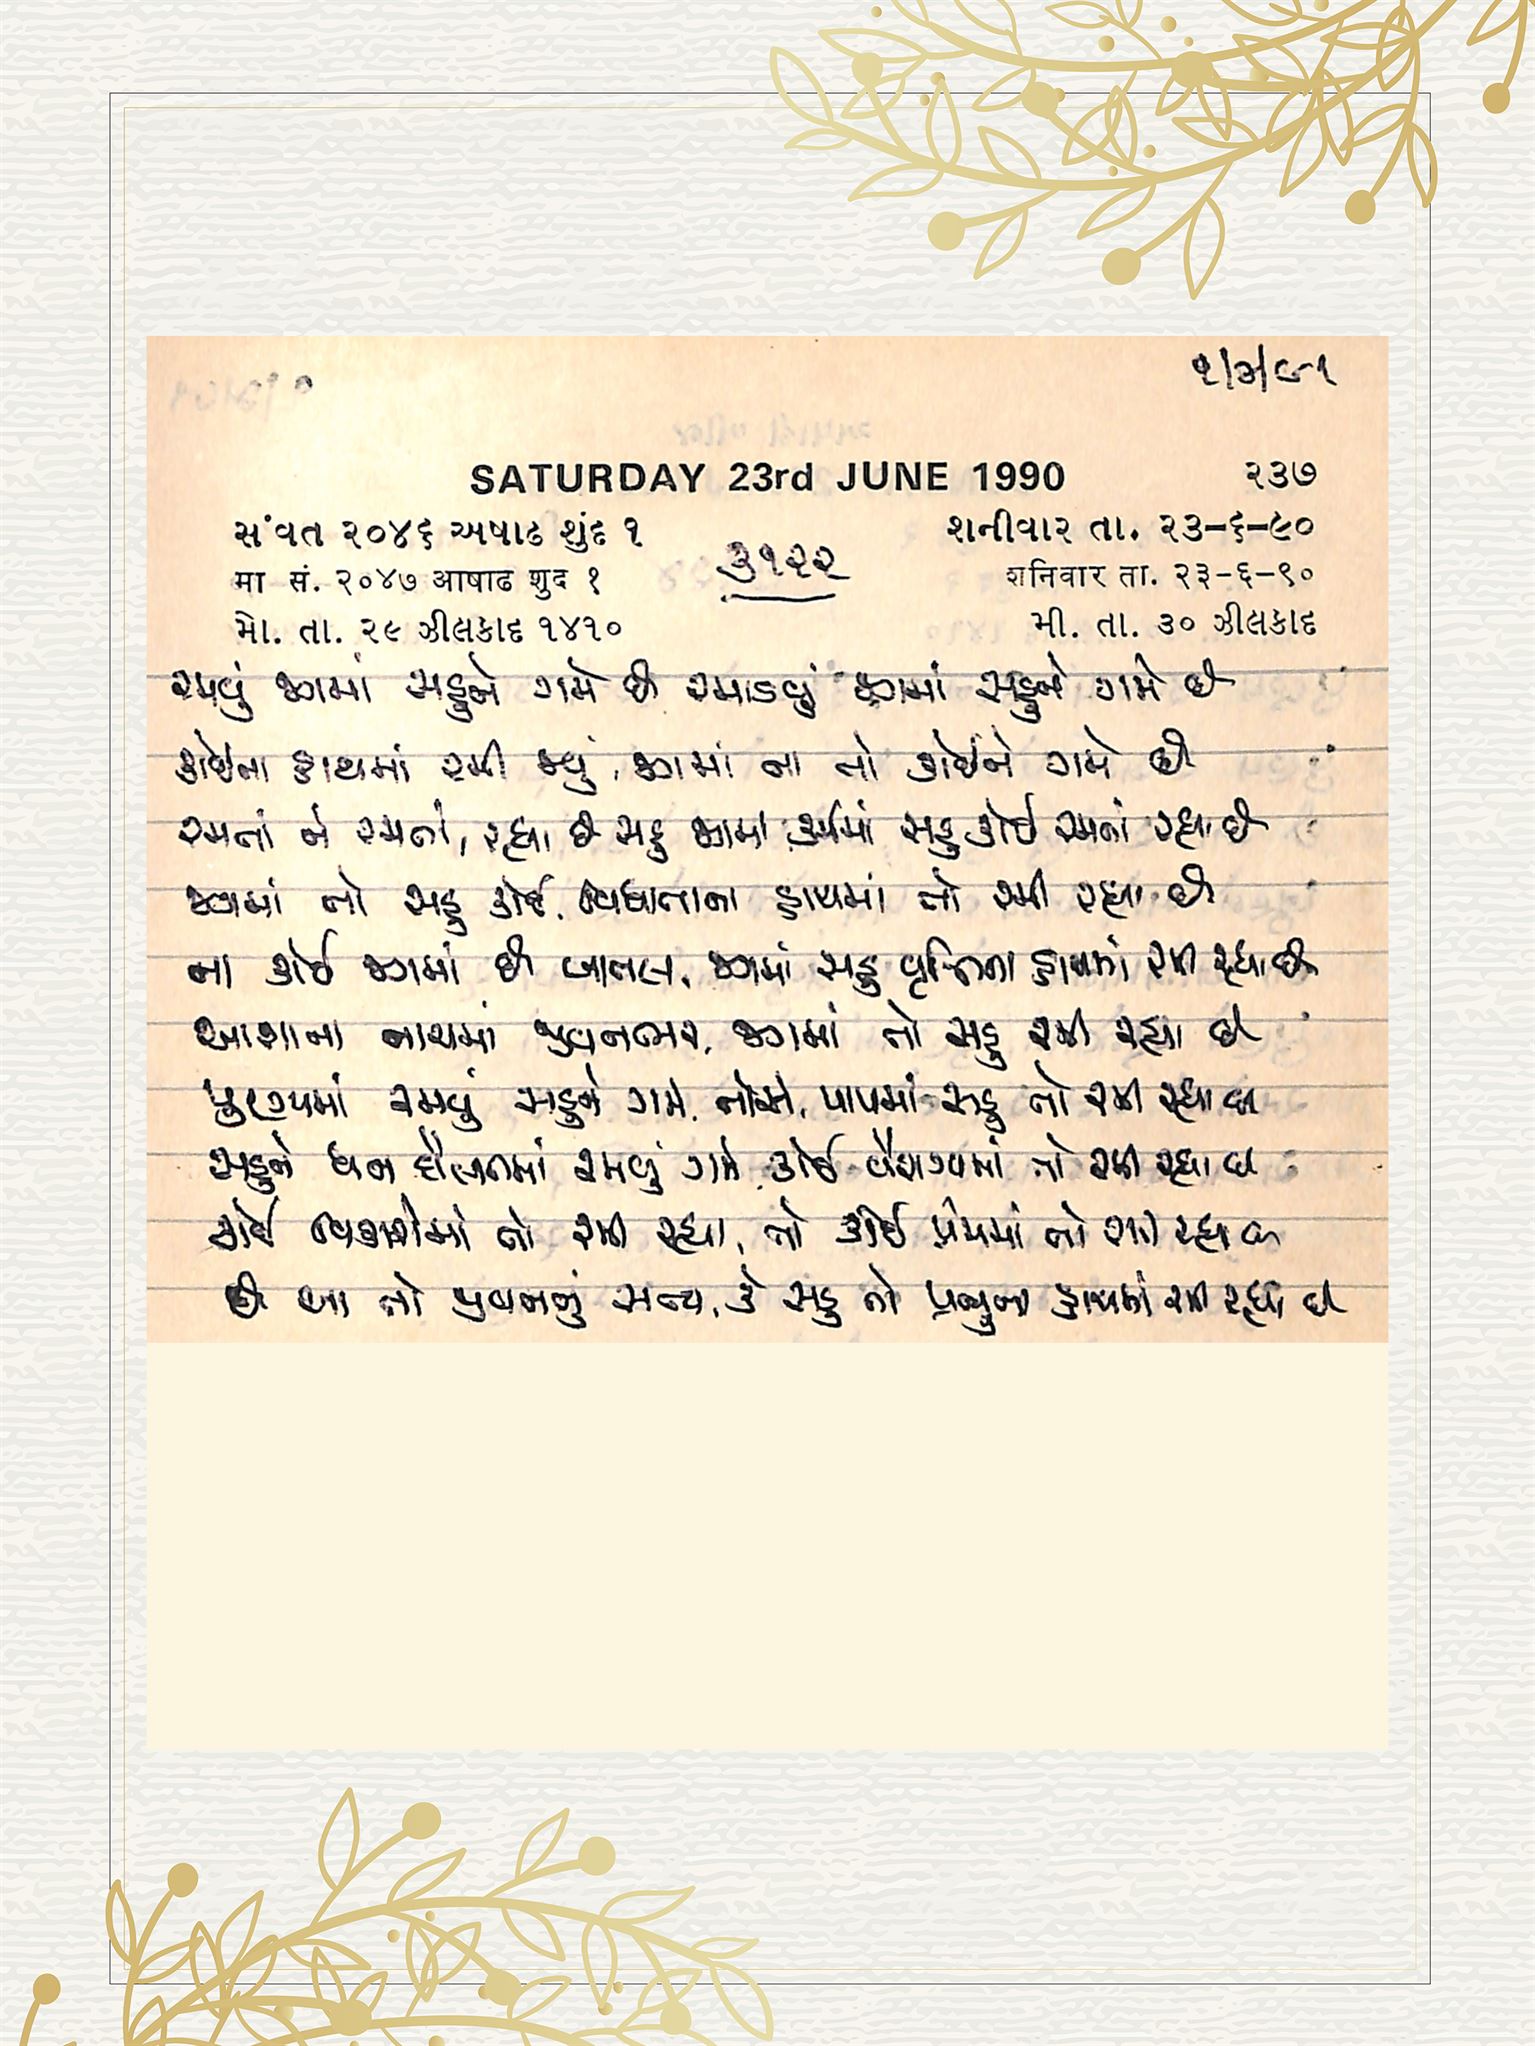 ૧/૩/૯૧
SATURDAY 23rd JUNE 1990 ૨૩૭
સંવત ૨૦૪૬ અષાઢ શુદ ૧ શનીવાર તા. ૨૩-૬-૯૦
૩૧૨૨
मा सं. २०४७ आषाढ शुद १ शनिवार ता. २३-६-९०
મો. તા. ૨૯ ઝીલકાદ ૧૪૧૦ મી. તા. ૩૦ ઝીલકાદ
રમવું જગમાં સહુને ગમે છે રમાડવું જગમાં સહુને ગમે છે
કોઈના હાથમાં રમી જવું, જગમાં ના તો કોઈને ગમે છે
રમતાં ને રમતાં, રહ્યા છે સહુ જગમાં કર્મમાં સહુ કોઈ રમતાં રહ્યા છે
જગમાં તો સહુ કોઈ, વિધાતાના હાથમાં તો રમી રહ્યા છે
ના કોઈ જગમાં છે બાતલ, જગમાં સહુ વૃત્તિના હાથમાં રમી રહ્યા છે
આશાના નાચમાં જીવનભર, જગમાં તો સહુ રમી રહ્યા છે
પુણ્યમાં રમવું સહુને ગમે, તોયે, પાપમાં સહુ તો રમી રહ્યા છે
સહુને ધન દૌલતમાં રમવું ગમે, કોઈ વૈરાગ્યમાં તો રમી રહ્યા છે
કોઈ વિકારોમાં તો રમી રહ્યા, તો કોઈ પ્રેમમાં તો રમી રહ્યા છે
છે આ તો જીવનનું સત્ય, કે સહુ તો પ્રભુના હાથમાં રમી રહ્યા છે